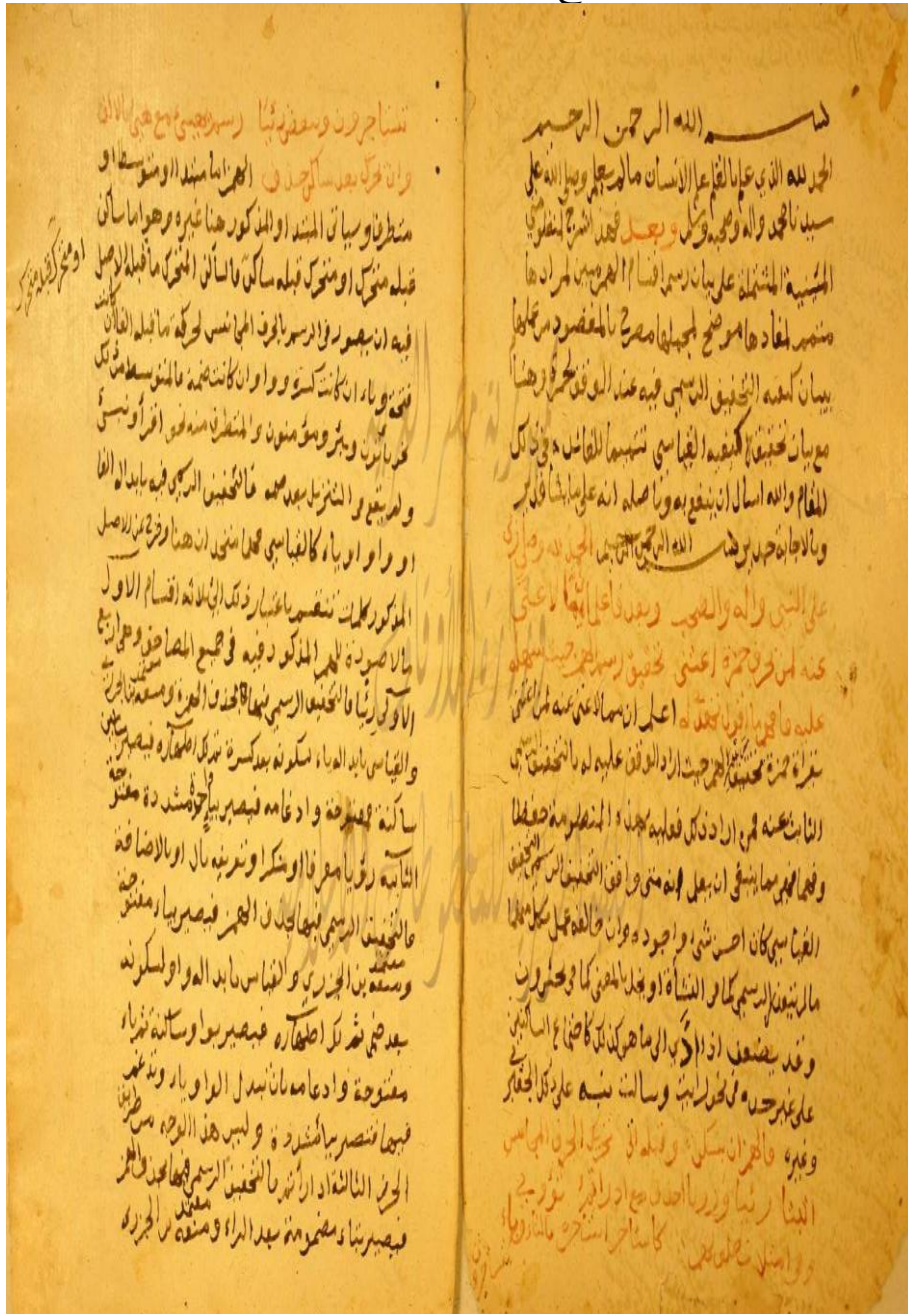 بسم الله الرحمن الرحيم
الحمد لله الذي علم بالقلم علم الانسان مالم يعلم وصلى الله على
سيدنا محمد واله وصحبه وسلم وبعد فهذا شرح لمنظومتي
المشتملة على بيان رسم اقسام الهمز مبين لمرادها
متمم لمفادها موضح لمجملها مصرح بالمقصود من
بيان كيفية التخفيف الرسمي فيه عند الوقف لحمزة وهشام
مع بيان تخفيف الكيفية القياسي تتميما للفائدة في ذلك
المقام والله اسال ان ينفع به وباصله انه على ما يشا قدير
وبالاجابة جدير بسم الله الرحمن الرحيم الحمد لله وصلى ربي
على النبي واله والصحب وبعد فاعلم لا غنى
عنه لمن قرى حمزة اعتنى تخفيف رسم الهمز حيث سهلو
عليه اعلم ان مما لا غنى عنه لمن اعتنى
بقراة حمزة تخفيف الهمز حيث اراد الوقف عليه له بالتخفيف الرسمي
الثابت عنه فمن اراد ذلك فعليه بهذه المنظومة حفظا
وفهما فهي مما ينبغي ان يعلم انه متى وافق التخفيف الرسمي التخفيف
القياسي كان احسن شيء واجوده وان خالفه عمل بكل منهما
مالم الرسمي كما في النشأة او يخل بالمعنى كما في يجئرون
وقد يضعف اذا ادي الى ما هو كذلك كاجتماع الساكنين
على غير حده في نحو ارايت وسالت نبه على ذلك الجعبري
وغيره فالهمز ان سكن وقبله اتى تحريك الحرف المجانس
رئيا ورؤيا احذف مع ادارأتم تؤوي
وامتلات كاستاجر استاجره بالتا وبياء
تستاجرون وبعض بئيا رسم وهيئ مع هيئ بالالف
وان تحرك بعد ساكن حذف الهمز اما مبتدا او متوسط او
متطرف وسياتي المبتدا والمذكور هنا غيره وهو اما ساكن
قبله متحرك او متحرك قبله ساكن فالساكن المتحرك ما قبله الاصل
او متحرك قبله متحرك
فيه ان يصور في الرسم بالحرف المجانس لحركة ما قبله الفا ان كانت
فتحة وياء ان كانت كسرة وواوا ان كانت ضمة فالمتوسط من ذلك
نحو يألون وبئر ومؤمنون والمتطرف منه نحو اقرأ ونبئ
ولم يقع في التنزيل بعد ضمة فالتخفيف الرسمي فيه بابداله الفا
او واوا او ياء كالقياسي فهما متحدان هنا وخرج عن الاصل
المذكور كلمات تنقسم باعتبار ذلك الى ثلاثة اقسام الاول
مالا صورة للهمز المذكور فيه في جميع المصاحف وهي اربع
الاولى رئيا فالتخفيف الرسمي فيها بحذف الهمزة ومنعه بن الجزري
والقياسي بابداله ياء لسكونه بعد كسرة ثم لك اظهاره فيصير بيائين
ساكنة فمفتوحة وادغامه فيصير بياء واحدة مشددة مفتوحة
الثانية رؤيا معرفا او منكرا وتعريفه بال او بالاضافة
فالتخفيف الرسمي فيها بحذف الهمز فيصير بياء مفتوحة
ومنعه بن الجزري والقياس بابداله واوا لسكونه
بعد ضم ثم لك اظهاره فيصير بواو ساكنة ثم ياء
مفتوحة وادغامه بان تبدل الواو ياء وتدغم
فيها فتصير بياء مشددة وليس هذا الوجه من طريق
الحرز الثالثة ادارأتم فالتخفيف الرسمي فيها بحذف الهمز
فيصير بتاء مضمومة بعد الراء ومنعه بن الجزري